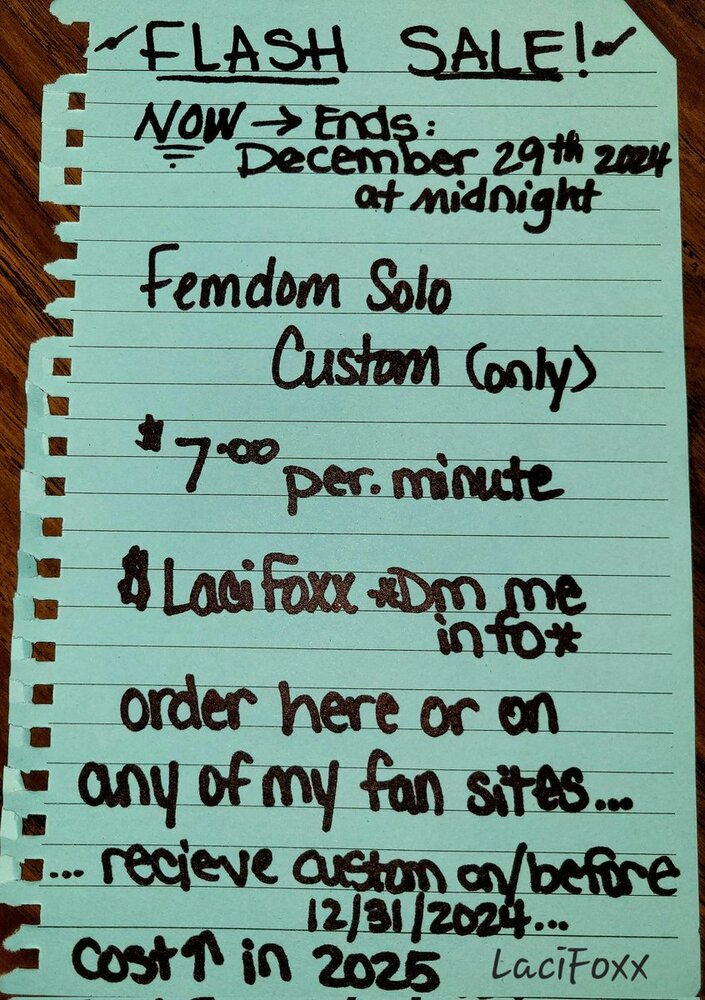 FLASH SALE!
NOW → Ends:
December 29th 2024
at midnight
Femdom Solo
Custom (only)
$7.00 per. minute
$LaciFoxx *Dm me
info*
order here or on
any of my fan sites...
... recieve custom on/before
12/31/2024...
cost↑ in 2025
LaciFoxx